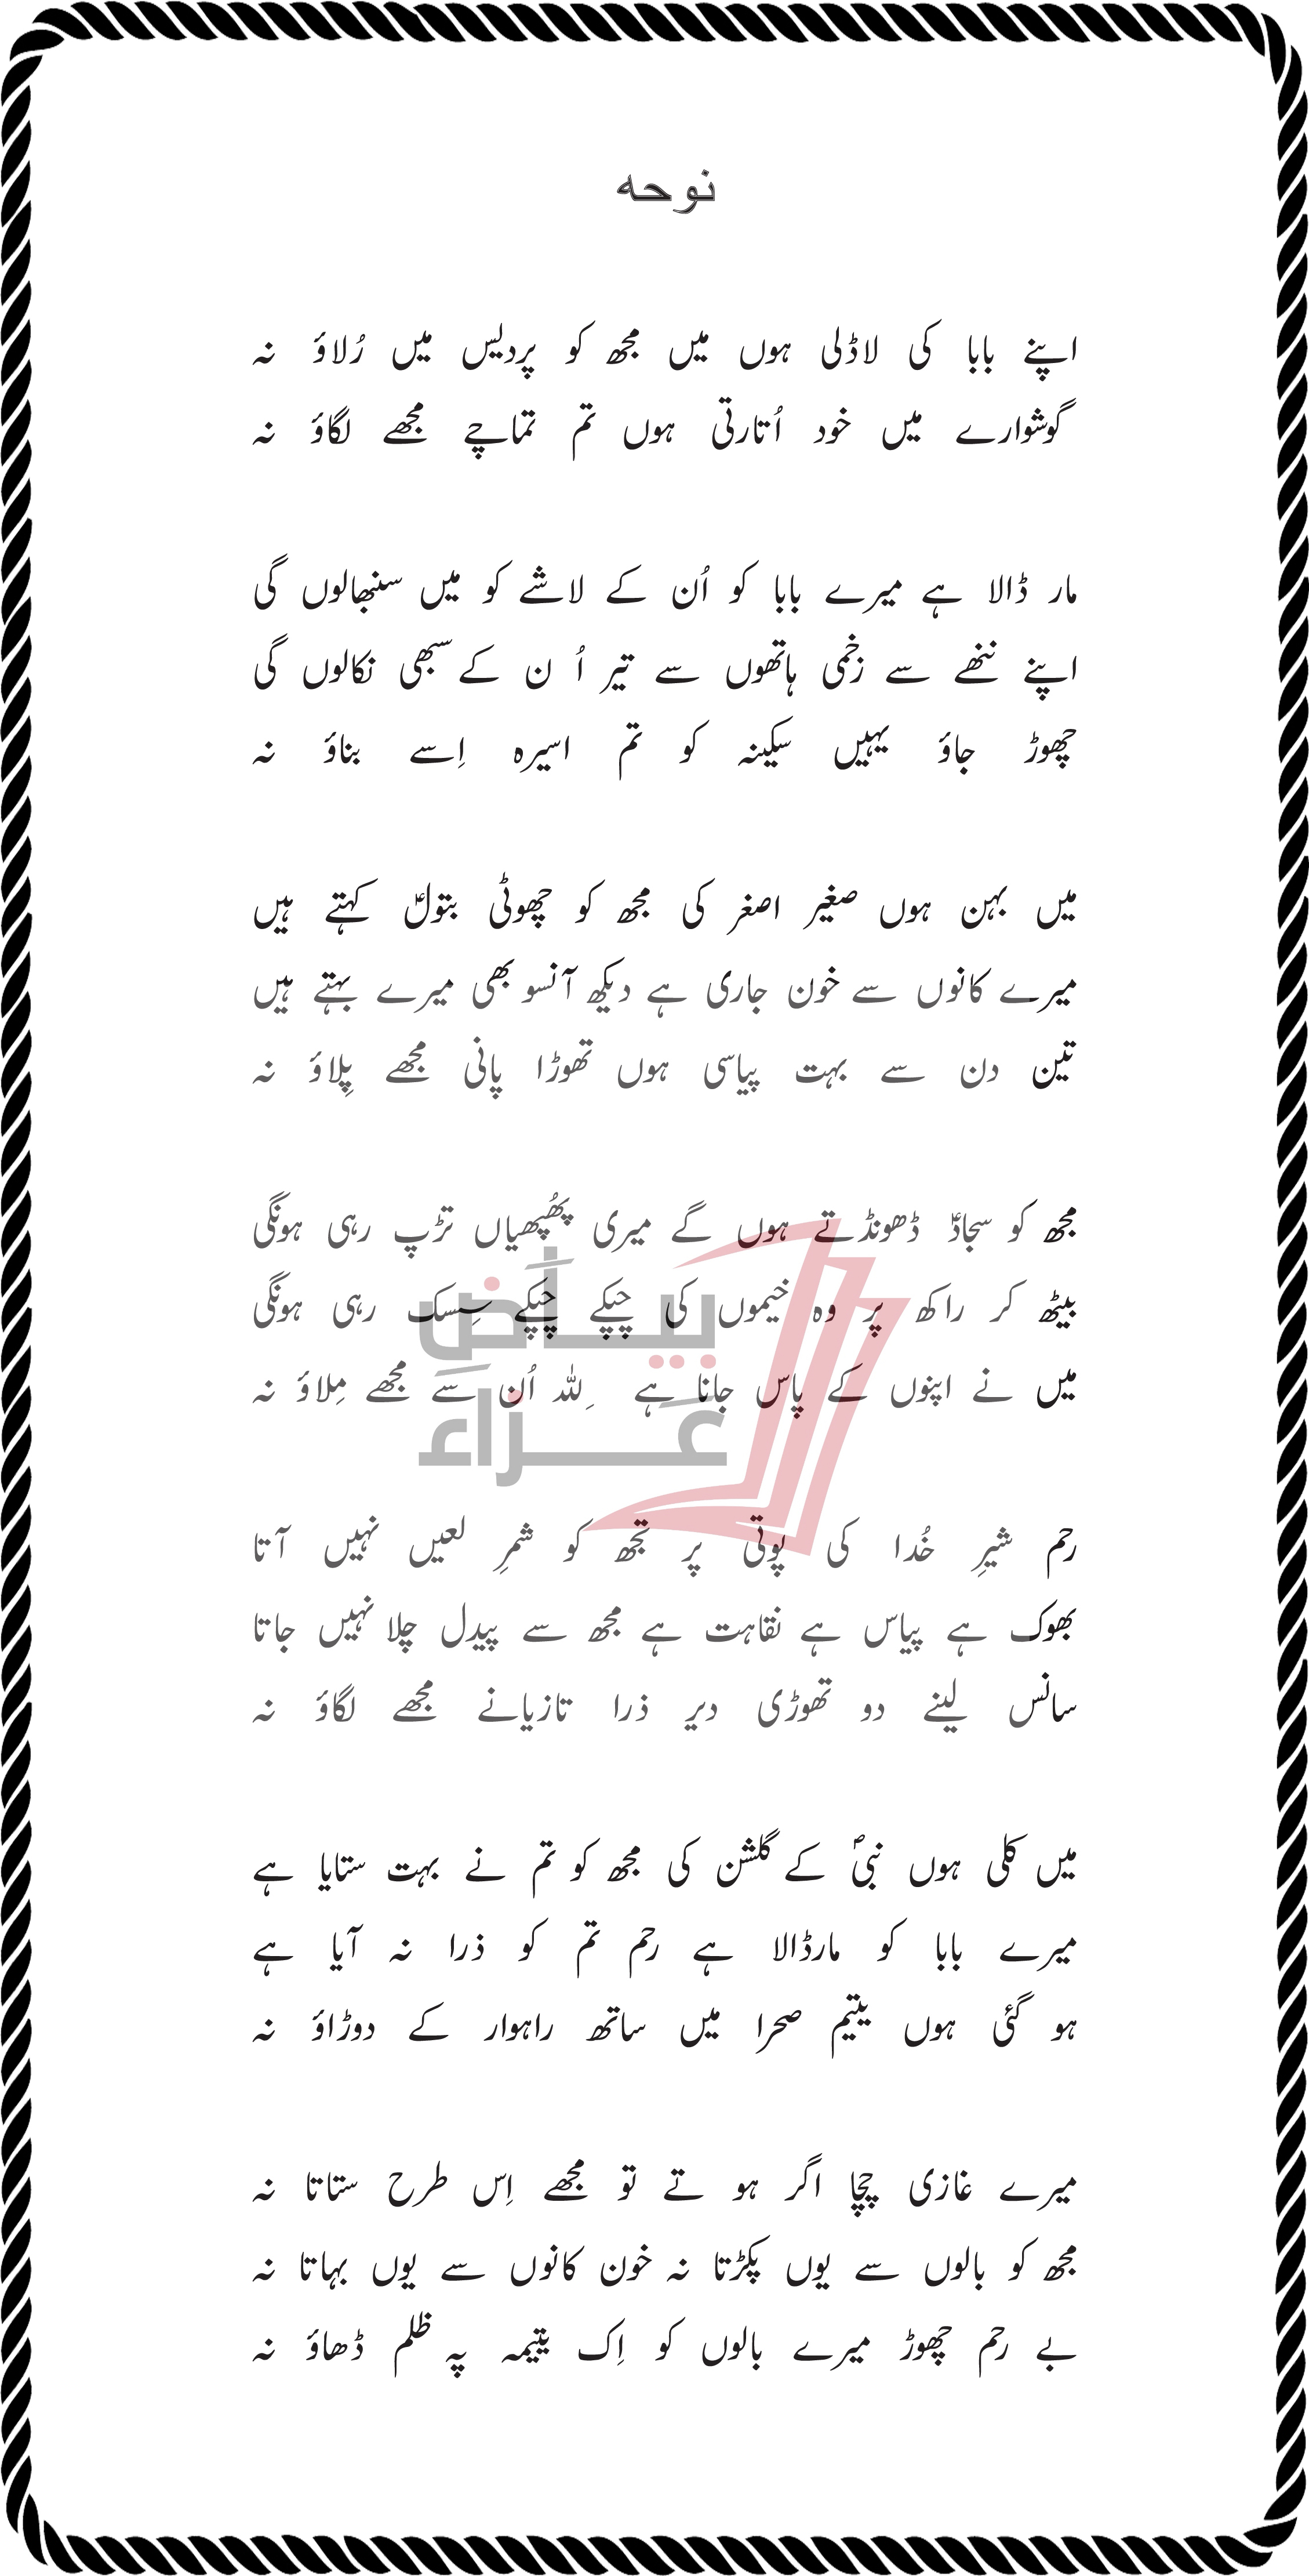 نوحہ
اپنے بابا کی لاڈلی ہوں میں مجھ کو پردیس میں رُلاؤ نہ
گوشوارے میں خود اُتارتی ہوں تم تماچے مجھے لگاؤ نہ
مار ڈالا ہے میرے بابا کو اُن کے لاشے کو میں سنبھالوں گی
اپنے ننھے سے زخمی ہاتھوں سے تیر اُ ن کے سبھی نکالوں گی
چھوڑ جاؤ یہیں سکینہ کو تم اسیرہ اِسے بناؤ نہ
میں بہن ہوں صغیر اصغر کی مجھ کو چھوٹی بتولؑ کہتے ہیں
میرے کانوں سے خون جاری ہے دیکھ آنسو بھی میرے بہتے ہیں
تین دن سے بہت پیاسی ہوں تھوڑا پانی مجھے پِلاؤ نہ
مجھ کو سجادؑ ڈھونڈتے ہوں گے میری پھُپھیاں تڑپ رہی ہونگی
بیٹھ کر راکھ پر وہ خیموں کی چپکے چپکے سِسک رہی ہونگی
میں نے اپنوں کے پاس جانا ہے لِلہ اُن سے مجھے مِلاؤ نہ
رحم شیرِ خُدا کی پوتی پر تجھ کو شمرِ لعیں نہیں آتا
بھوک ہے پیاس ہے نقاہت ہے مجھ سے پیدل چلا نہیں جاتا
سانس لینے دو تھوڑی دیر ذرا تازیانے مجھے لگاؤ نہ
میں کلی ہوں نبیؐ کے گلشن کی مجھ کو تم نے بہت ستایا ہے
میرے بابا کو مارڈالا ہے رحم تم کو ذرا نہ آیا ہے
ہو گئی ہوں یتیم صحرا میں ساتھ راہوار کے دوڑاؤ نہ
میرے غازی چچا اگر ہو تے تو مجھے اِس طرح ستاتا نہ
مجھ کو بالوں سے یوں پکڑتا نہ خون کانوں سے یوں بہاتا نہ
بے رحم چھوڑ میرے بالوں کو اِک یتیمہ پہ ظلم ڈھاؤ نہ
بیاضِ
عزاء